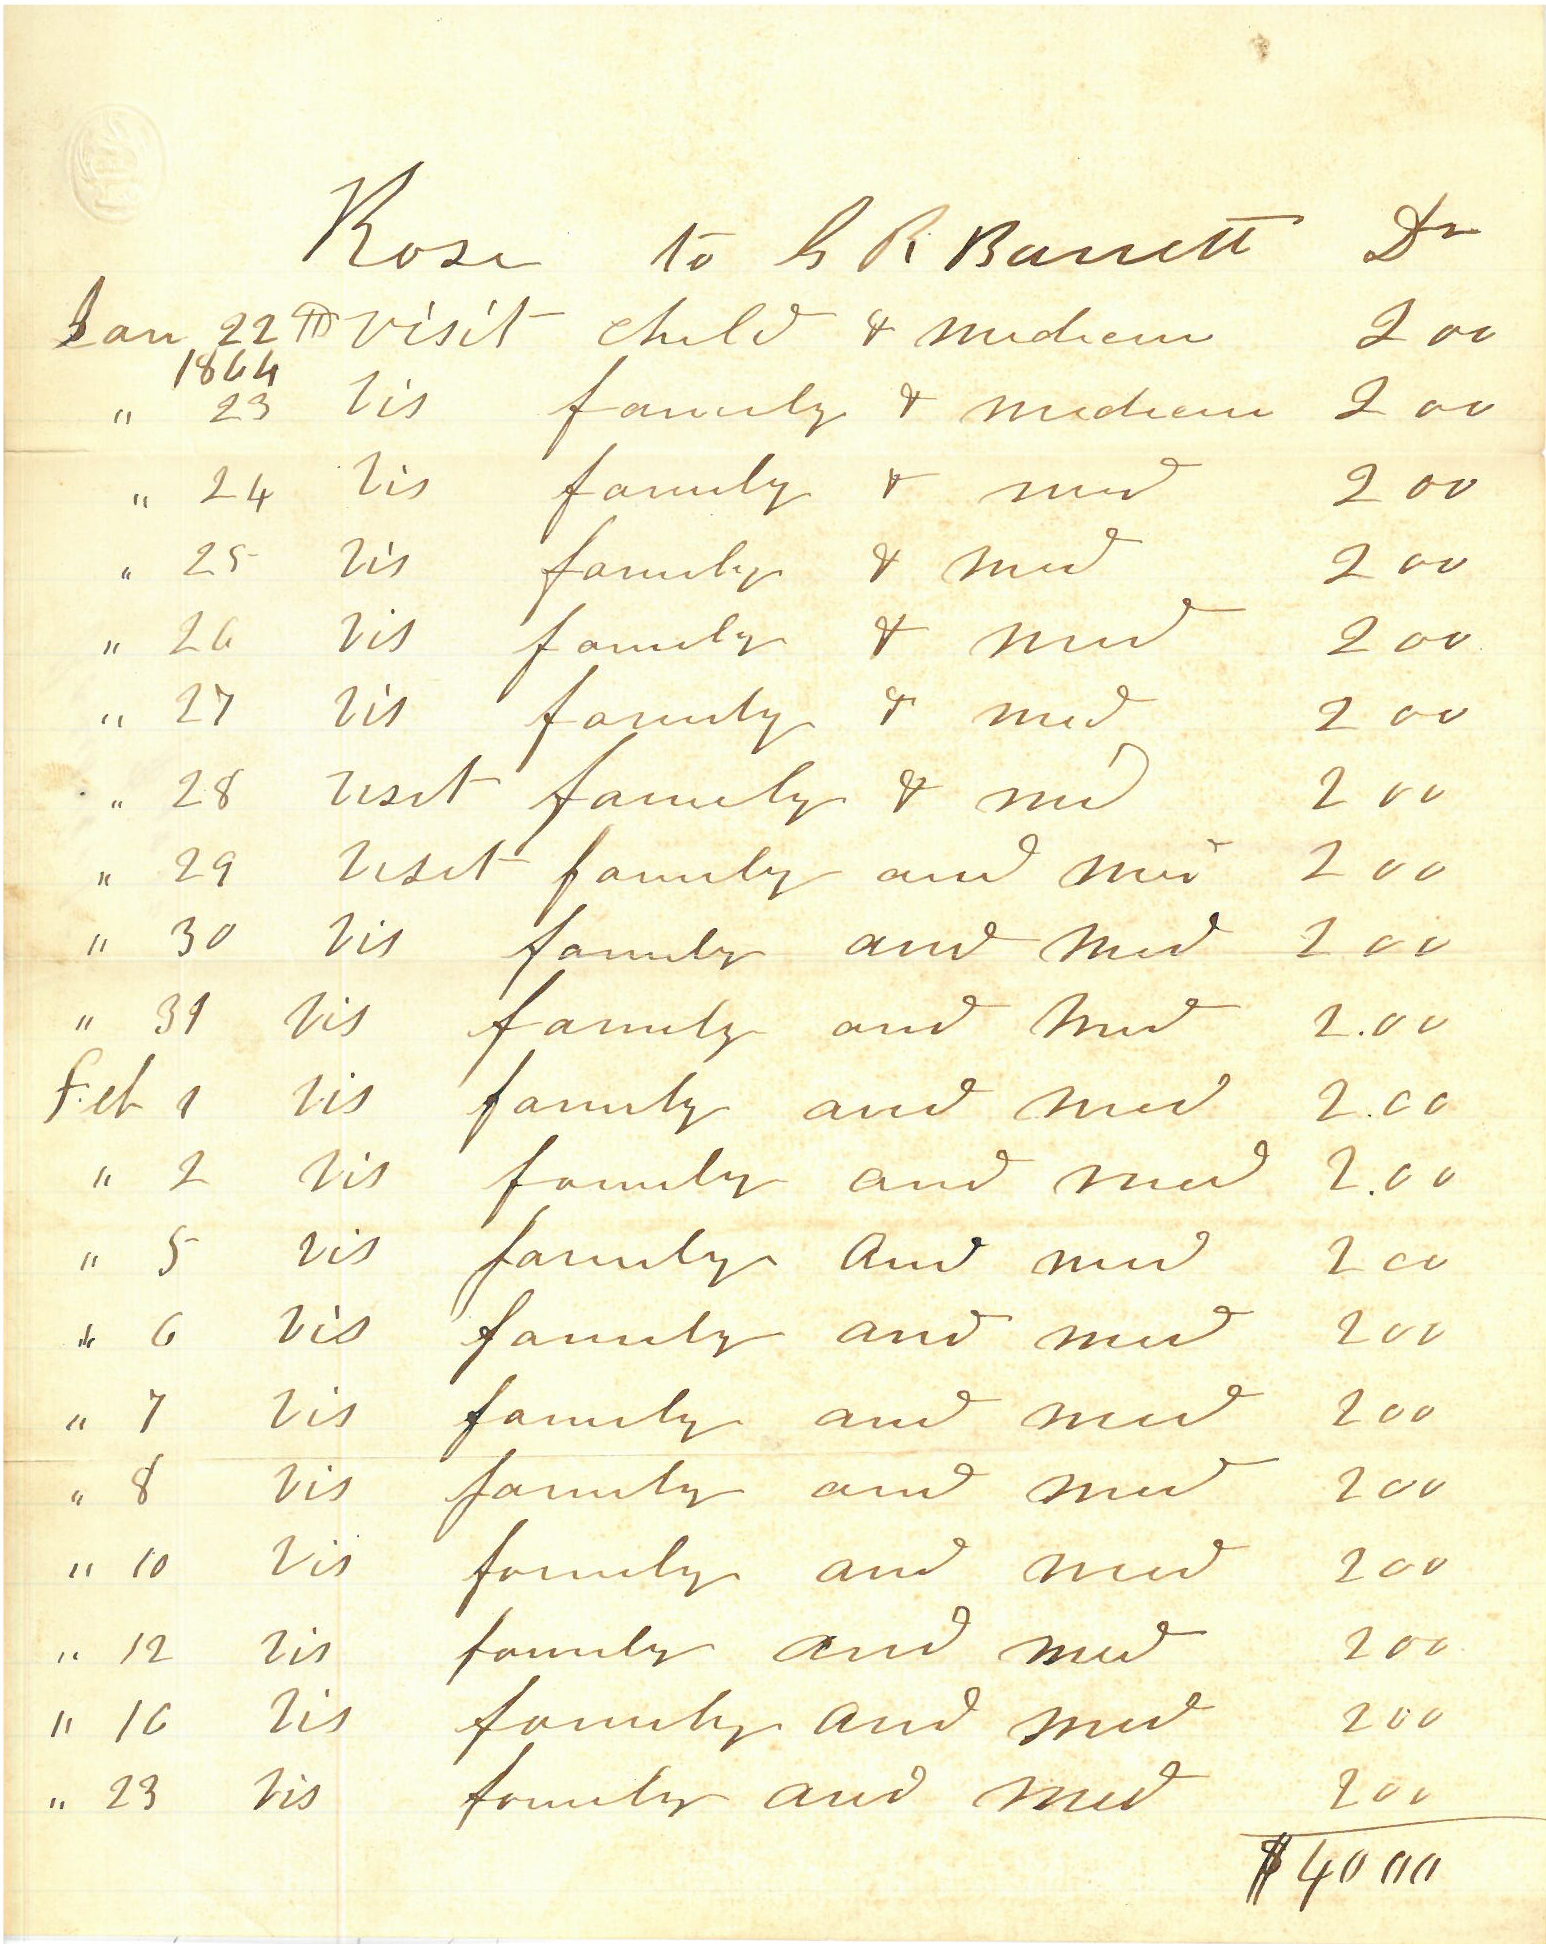 Rose to G R Barrett Dr
Jan 22nd visit child & medicin 2 00
1864
" 23 Vis family & medicin 2 00
" 24 Vis family & med 2 00
" 25 Vis family & med 2 00
" 26 Vis family & med 2 00
" 27 Vis family & med 2 00
" 28 Visit family & med 2 00
" 29 Visit family and med 2 00
" 30 Vis family and med 2 00
" 31 Vis family and med 2.00
Feb 1 Vis family and med 2.00
" 2 Vis family and med 2.00
" 5 Vis family and med 2 00
" 6 Vis family and med 2 00
" 7 Vis family and med 2 00
" 8 Vis family and med 2 00
" 10 Vis family and med 2 00
" 12 Vis family and med 2 00
" 16 Vis family and med 2 00
" 23 Vis family and med 2 00
$40 00